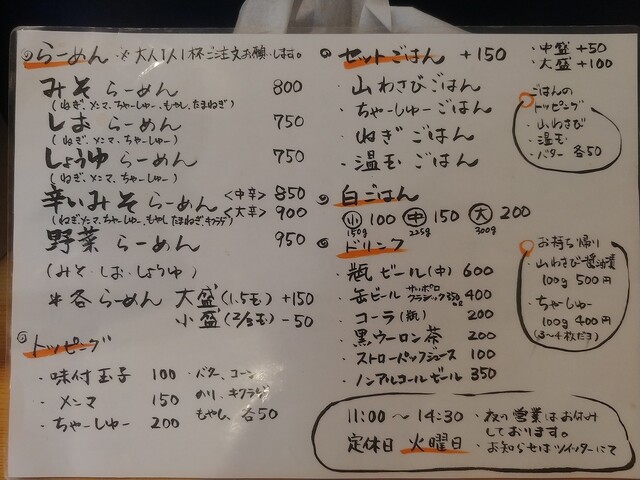 らーめん ※大人1人1杯ご注文お願いします。
みそらーめん 800
(ねぎ、メンマ、ちゃーしゅー、もやし、たまねぎ)
しおらーめん 750
(ねぎ、メンマ、ちゃーしゅー)
しょうゆらーめん 750
(ねぎ、メンマ、ちゃーしゅー)
辛いみそらーめん <中辛>850
<大辛>900
(ねぎ、メンマ、ちゃーしゅー、もやし、たまねぎ、キクラゲ)
野菜らーめん 950
(みそ しお しょうゆ)
*各らーめん 大盛(1.5玉) +150
小盛(2/3玉) -50
トッピング
・味付玉子 100
・メンマ 150
・ちゃーしゅー 200
・バター、コーン、
のり、キクラゲ
もやし、各50
セットごはん +150
・中盛 +50
・大盛 +100
・山わさびごはん
・ちゃーしゅーごはん
・ねぎごはん
・温玉ごはん
ごはんの
トッピング
・山わさび
・温玉
・バター 各50
白ごはん
小 100 中 150 大 200
150g 225g 300g
ドリンク
・瓶ビール(中) 600
・缶ビール サッポロクラシック350ml 400
・コーラ(瓶) 200
・黒ウーロン茶 200
・ストローパックジュース 100
・ノンアルコールビール 350
お持ち帰り
・山わさび醤油漬
100g 500円
・ちゃーしゅー
100g 400円
(3~4枚だよ)
11:00~14:30
定休日 火曜日
・夜の営業はお休み
しております。
・お知らせはツイッターにて